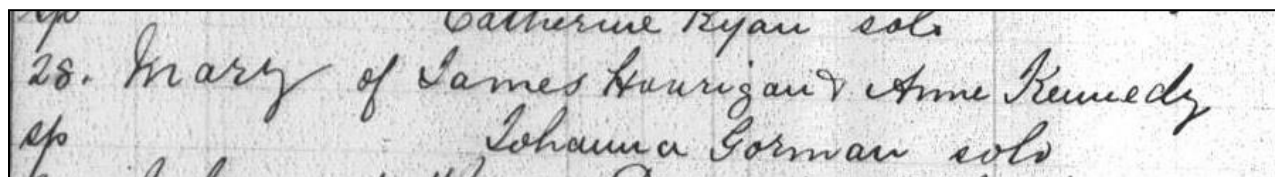 sp Catherine Ryan sol.
28. Mary of James Hourigan & Anne Kennedy
sp Johanna Gorman solo